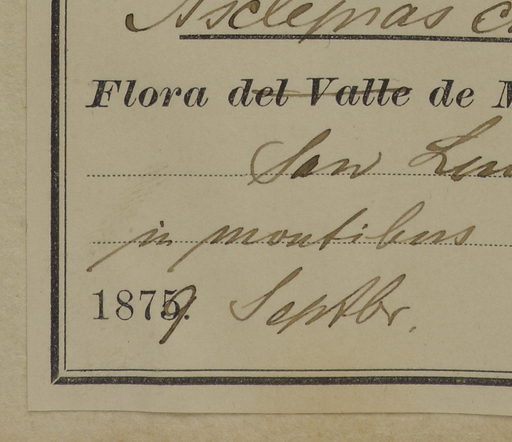 Asclepias
Flora del Valle de M
San Lu
in montibus
1879 Septbr.